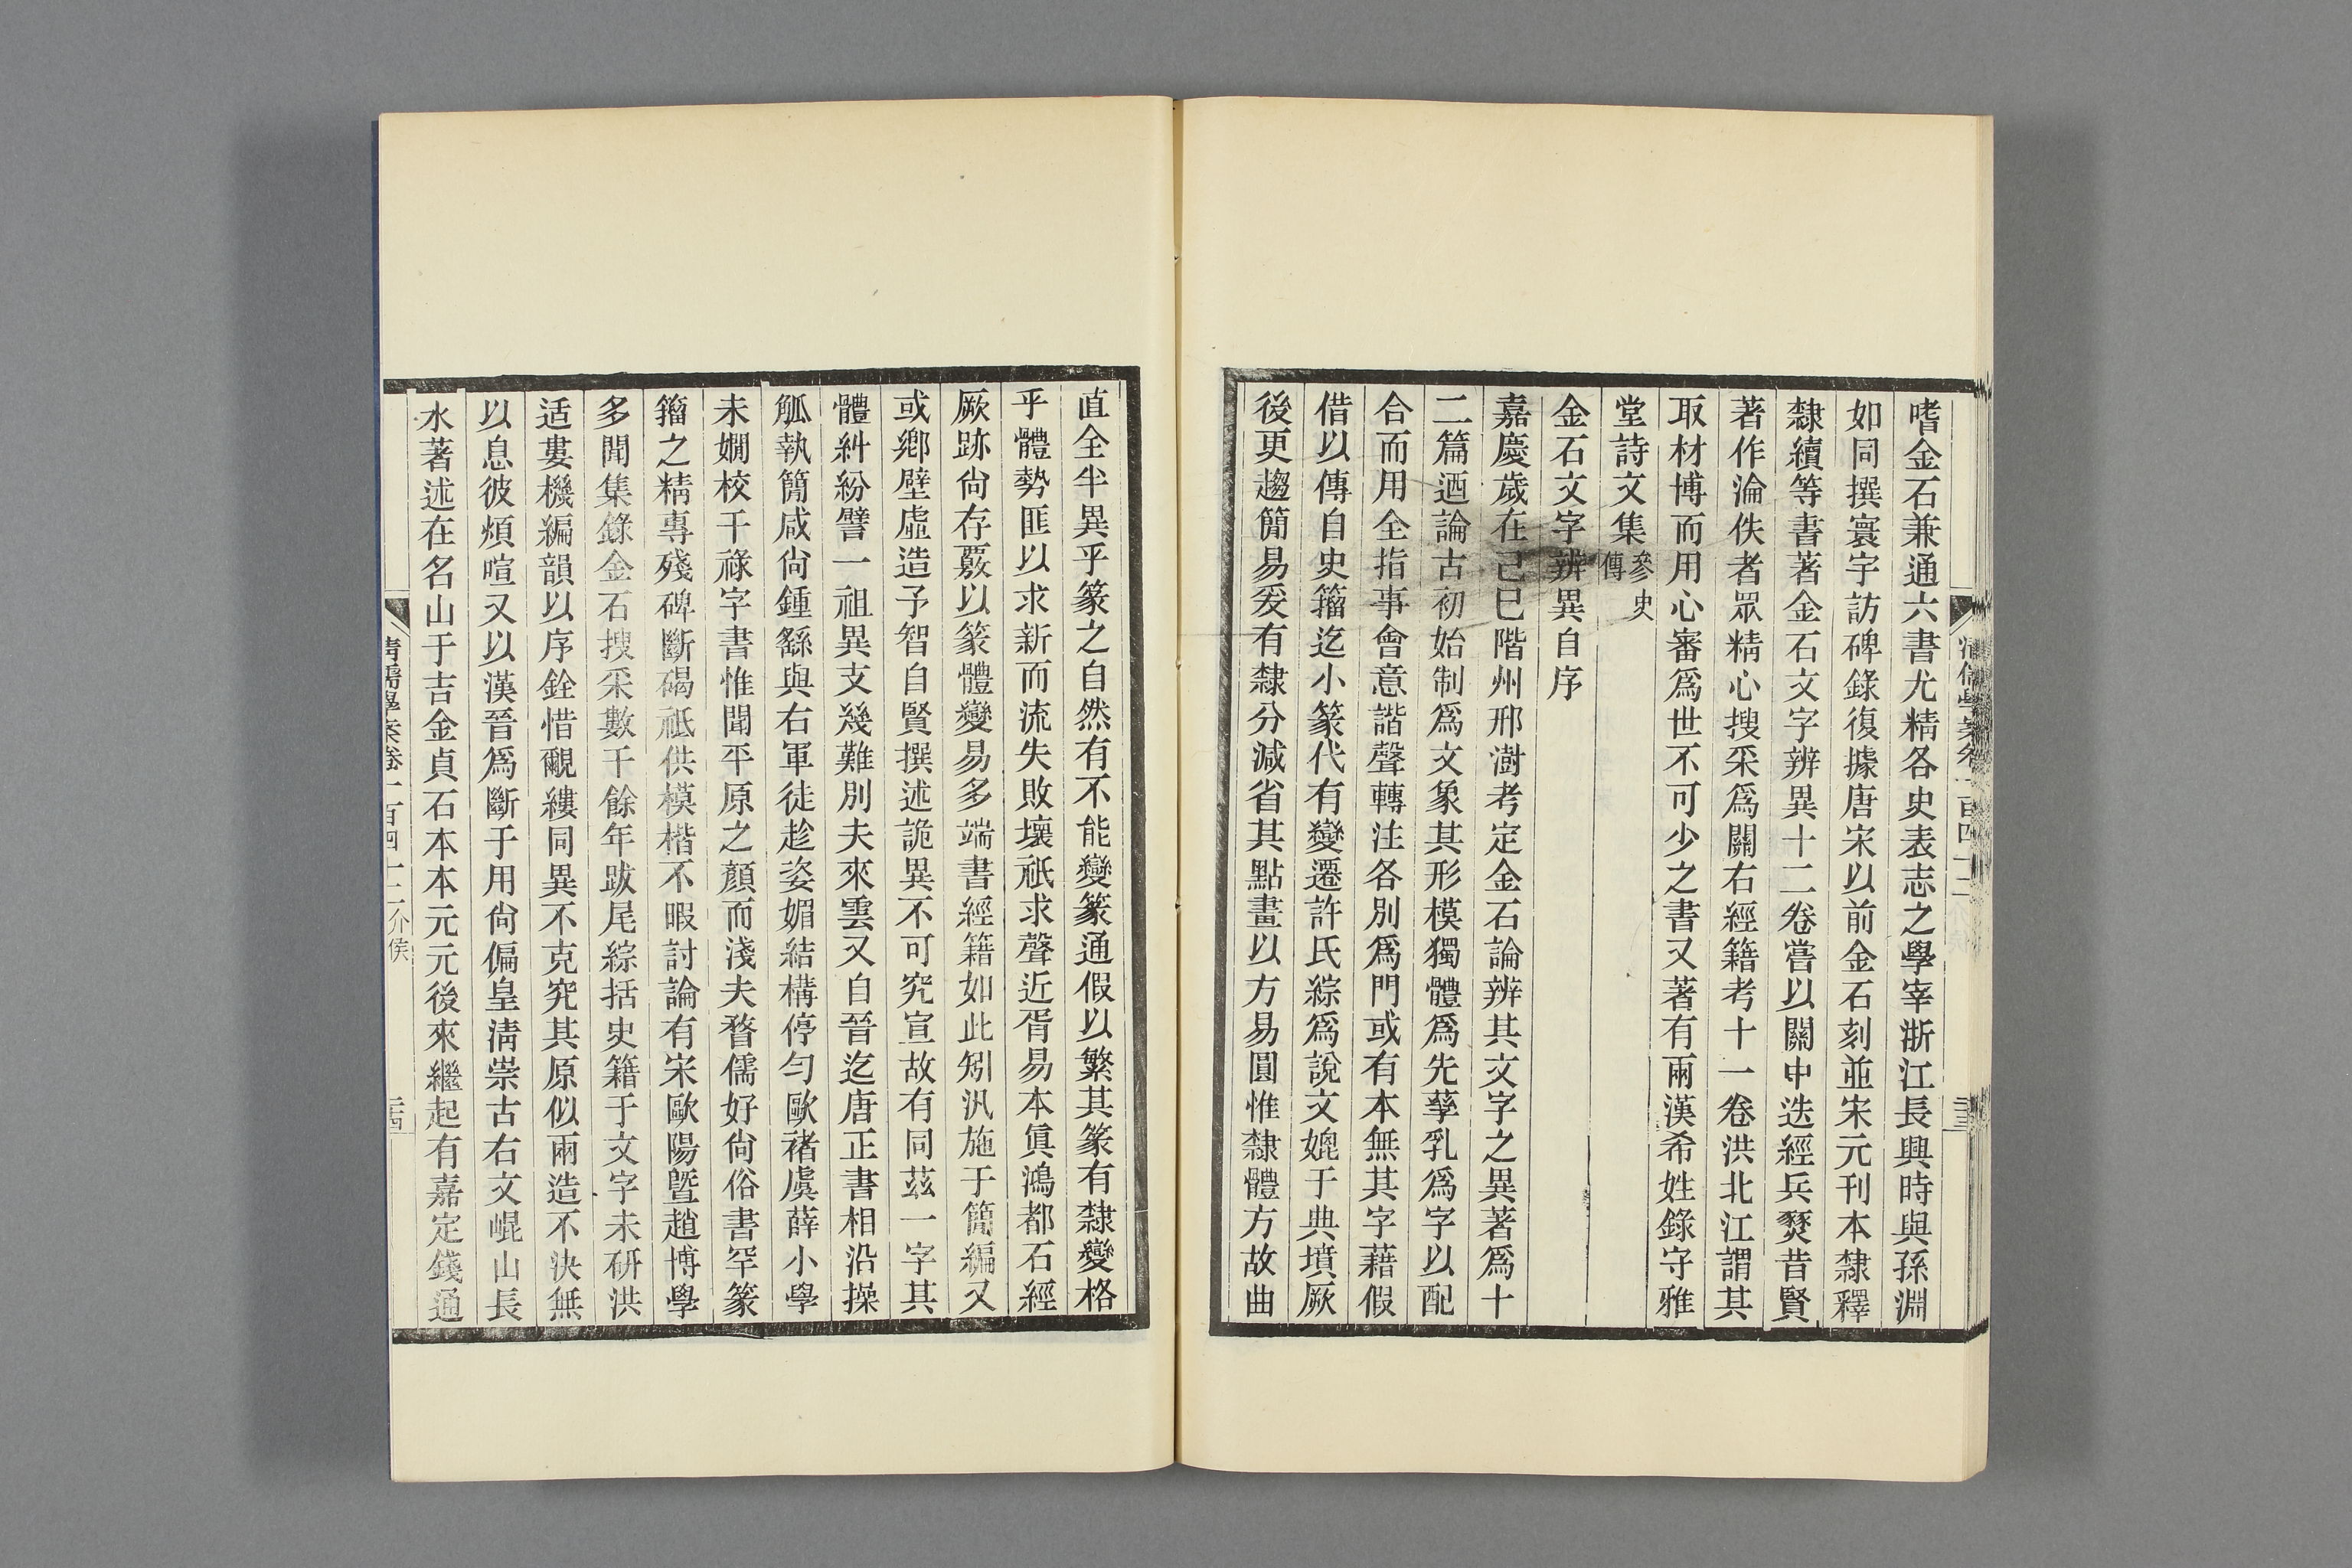 嗜金石兼通六書尤精各史表志之學宰浙江長興時與孫淵
如同撰寰宇訪碑錄復據唐宋以前金石刻並宋元刊本隸釋
隸續等書著金石文字辨異十二卷嘗以關中迭經兵燹昔賢
著作淪佚者眾精心搜采爲關右經籍考十一卷洪北江謂其
取材博而用心審爲世不可少之書又著有兩漢希姓錄守雅
堂詩文集參史傳
金石文字辨異自序
嘉慶歲在己巳階州邢澍考定金石論辨其文字之異著爲十
二篇迺論古初始制爲文象其形模獨體爲先孳乳爲字以配
合而用全指事會意諧聲轉注各別爲門或有本無其字藉假
借以傳自史籀迄小篆代有變遷許氏綜爲說文媲于典墳厥
後更趨簡易爰有隸分減省其點畫以方易圓惟隸體方故曲
直全半異乎篆之自然有不能變篆通假以繁其篆有隸變格
乎體勢匪以求新而流失敗壞祇求聲近胥易本眞鴻都石經
厥跡尙存覈以篆體變易多端書經籍如此矧汎施于簡編又
或鄉壁虛造予智自賢撰述詭異不可究宣故有同茲一字其
體糾紛譬一祖異支幾難別夫來雲又自晉迄唐正書相沿操
觚執簡咸尙鍾繇與右軍徒趁姿媚結構停勻歐褚虞薛小學
未嫺校干祿字書惟聞平原之顏而淺夫瞀儒好尙俗書罕篆
籀之精專殘碑斷碣祇供模楷不暇討論有宋歐陽曁趙博學
多聞集錄金石搜采數千餘年跋尾綜括史籍于文字未硏洪
适婁機編韻以序銓惜覼縷同異不克究其原似兩造不決無
以息彼煩喧又以漢晉爲斷于用尙偏皇淸崇古右文崐山長
水著述在名山于吉金貞石本本元元後來繼起有嘉定錢通
清儒學案卷一百四十二 介侯